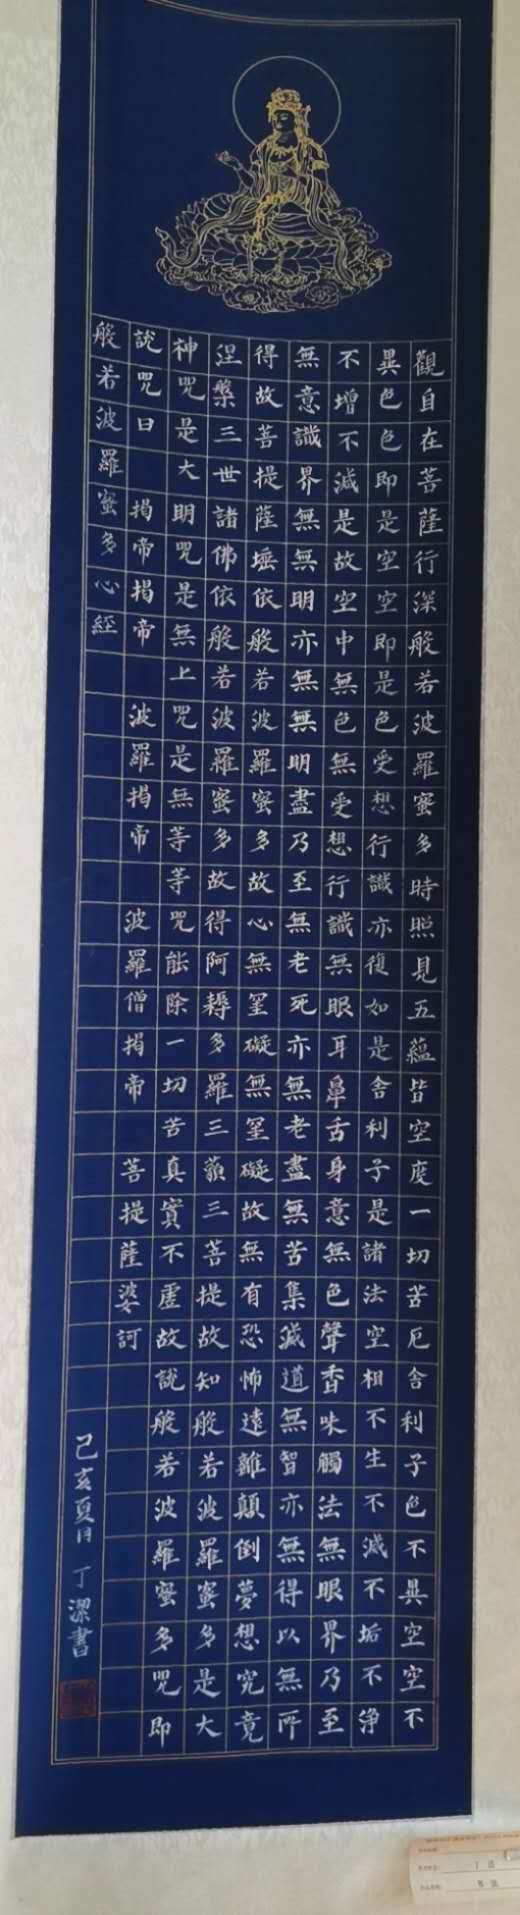 觀自在菩薩行深般若波羅蜜多時照見五蘊皆空度一切苦厄舍利子色不異空空不
異色色即是空空即是色受想行識亦復如是舍利子是諸法空相不生不滅不垢不淨
不增不減是故空中無色無受想行識無眼耳鼻舌身意無色聲香味觸法無眼界乃至
無意識界無無明亦無無明盡乃至無老死亦無老盡無苦集滅道無智亦無得以無所
得故菩提薩埵依般若波羅蜜多故心無罣礙無罣礙故無有恐怖遠離顛倒夢想究竟
涅槃三世諸佛依般若波羅蜜多故得阿耨多羅三藐三菩提故知般若波羅蜜多是大
神咒是大明咒是無上咒是無等等咒能除一切苦真實不虛故說般若波羅蜜多咒即
說咒曰 揭帝揭帝 波羅揭帝 波羅僧揭帝 菩提薩婆訶
般若波羅蜜多心經
己亥夏日 丁潔書
丁潔